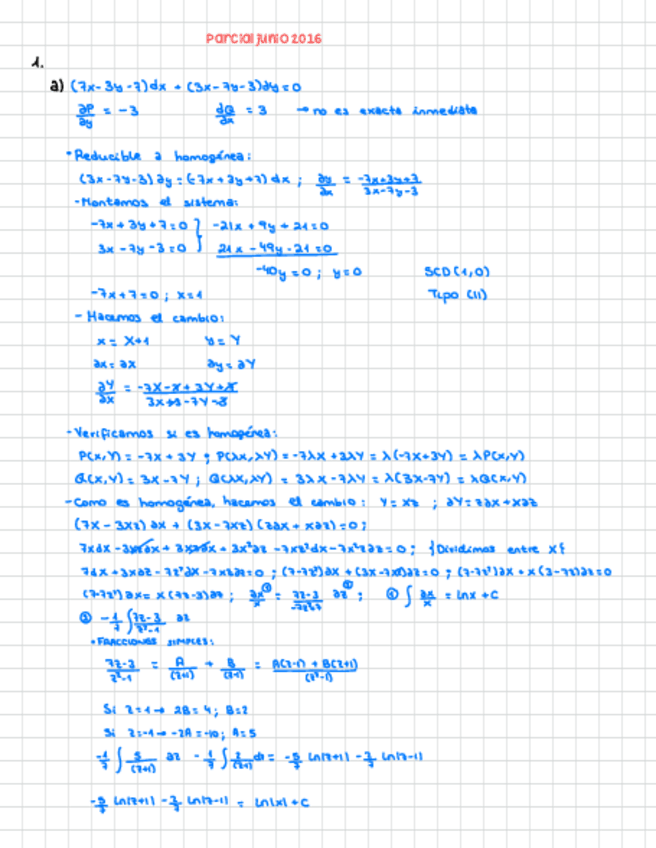 Parcial junio 2016
1.
a) (7x-3y-7)dx + (3x-7y-3)dy=0
∂P/∂y = -3    dQ/dx = 3 → no es exacta inmediata
• Reducible a homogénea:
(3x-7y-3)dy = (-7x+3y+7)dx ; dy/dx = (-7x+3y+7)/(3x-7y-3)
- Montamos el sistema:
-7x+3y+7=0 } -21x+9y+21=0
3x-7y-3=0 } 21x-49y-21=0
-40y=0 ; y=0    SCD(1,0)
-7x+7=0 ; x=1    Tipo (II)
- Hacemos el cambio:
x = X+1    y = Y
dx = dX    dy = dY
dY/dX = (-7X-7+3Y+7)/(3X+3-7Y-3)
- Verificamos si es homogénea:
P(X,Y) = -7X+3Y ; P(λX,λY) = -7λX+3λY = λ(-7X+3Y) = λP(X,Y)
Q(X,Y) = 3X-7Y ; Q(λX,λY) = 3λX-7λY = λ(3X-7Y) = λQ(X,Y)
- Como es homogénea, hacemos el cambio: Y=Xz ; dY=zdx+xdz
(7X-3Xz)dx + (3X-7Xz)(zdx+xdz)=0;
7xdx - 3xzdx + 3xzdx + 3x²dz - 7xz²dx - 7x²zdz=0 ; {Dividimos entre X}
7dx+3xdz-7z²dx-7xzdz=0 ; (7-7z²)dx+(3x-7xz)dz=0 ; (7-7z²)dx+x(3-7z)dz=0
(7-7z²)dx = x(7z-3)dz ; dx/x ① = (7z-3)/(-7z²+7) dz ② ; ① ∫ dx/x = lnx + C
② -1/7 ∫ (7z-3)/(z²-1) dz
• FRACCIONES SIMPLES:
(7z-3)/(z²-1) = A/(z+1) + B/(z-1) = (A(z-1)+B(z+1))/(z²-1)
Si z=1 → 2B=4 ; B=2
Si z=-1 → -2A=-10 ; A=5
-1/7 ∫ 5/(z+1) dz - 1/7 ∫ 2/(z-1) dz = -5/7 ln|z+1| - 2/7 ln|z-1|
-5/7 ln|z+1| - 2/7 ln|z-1| = ln|x| + C